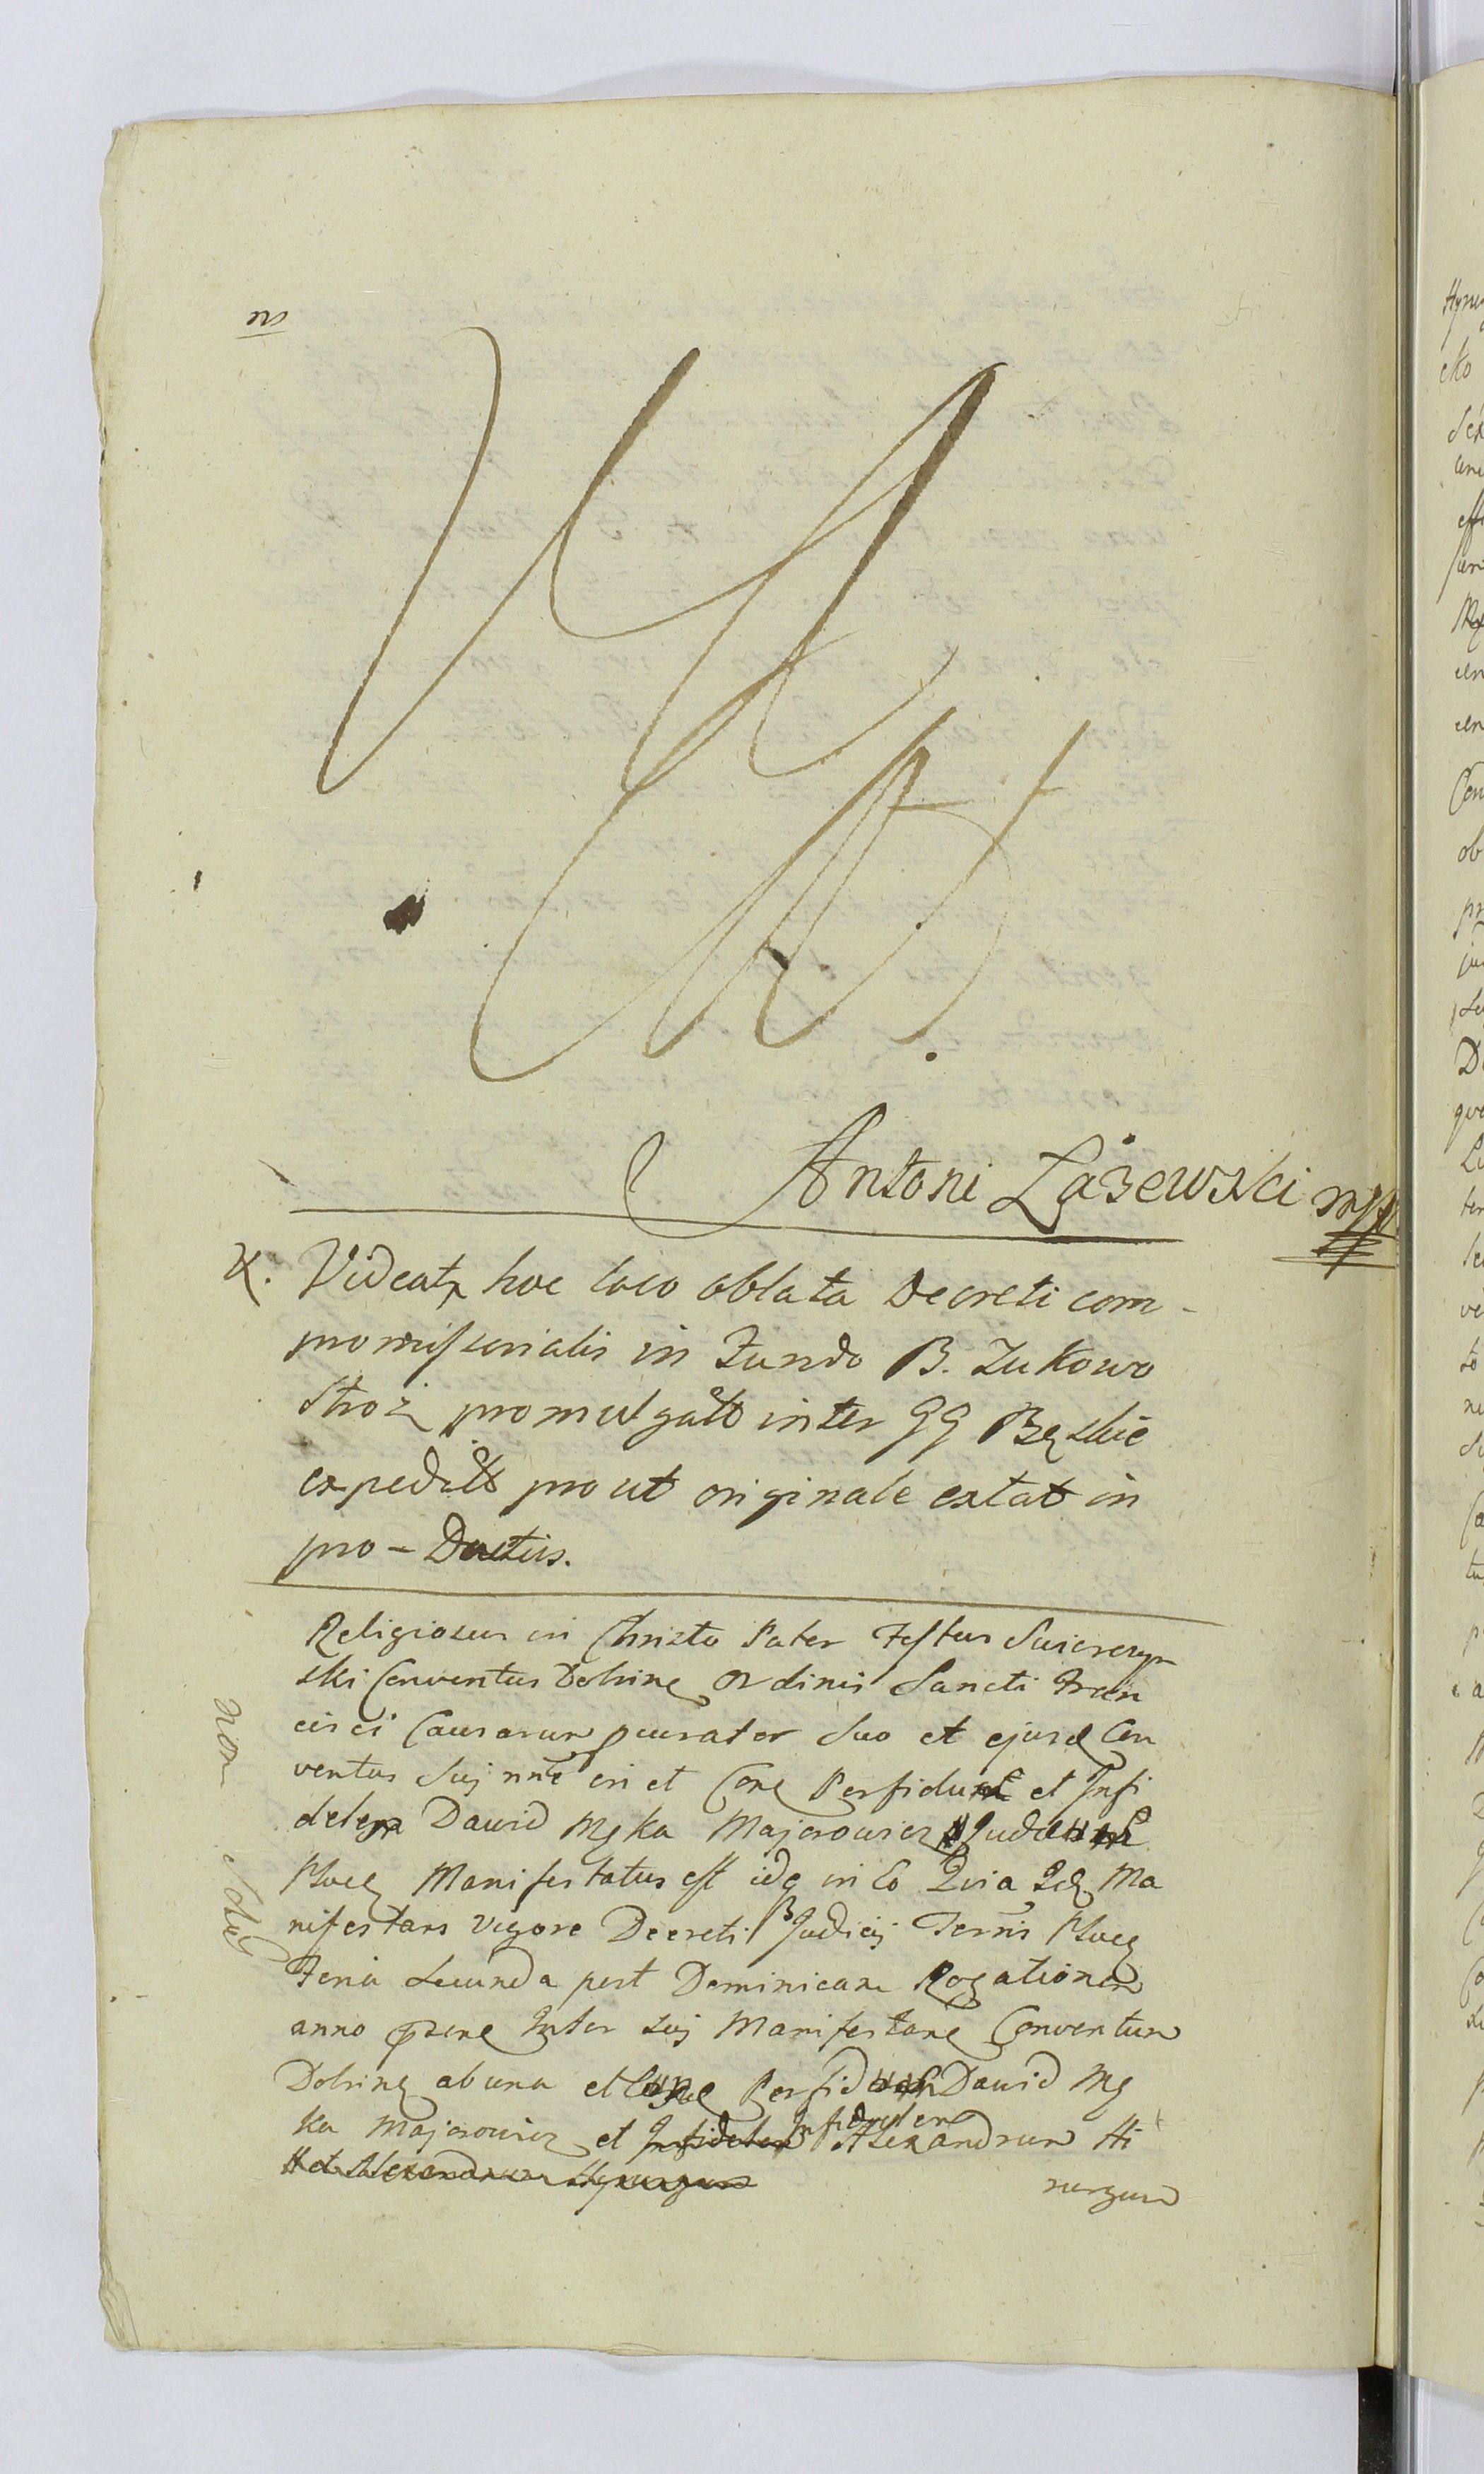 ns
Antoni Zażewski mp
X. Videatr hoc loco oblata Decreti com-
promissorialis in Fundo B. Zukowo
Stroż promulgatt inter GG Bęskie
expeditt prout originale extat in
pro-Ductis.
Religiosus in Christo Pater Festus
ski Conventus Dobrinę Ordinis Sancti Fran
cisci Causarum pcurator Suo et ejusd Con
ventus Suj nne in et Cone Perfidum et Infi
delem Dawid Męka Majorowicz Judæum
Płocę Manifestatus est idq in Eo Quia Idē Ma
nifestans vigore Decreti Judicij Terris Płocę
Feria Secunda post Dominicam Rogationum
anno psene Inter Suj Manifestane Conventum
Dobrinę ab una et Perfidum Dawid Mę
ka Majorowicz et Infidelem Infidelem Alexandrum Hi
et Alexandrum Hyrurgum
rurgum
non Solut